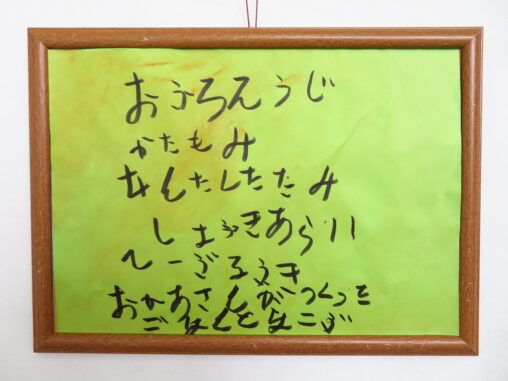 おふろそうじ
かたもみ
せんたくたたみ
しょっきあらい
てーぶるふき
おかあさんがつくった
ごはんをはこぶ